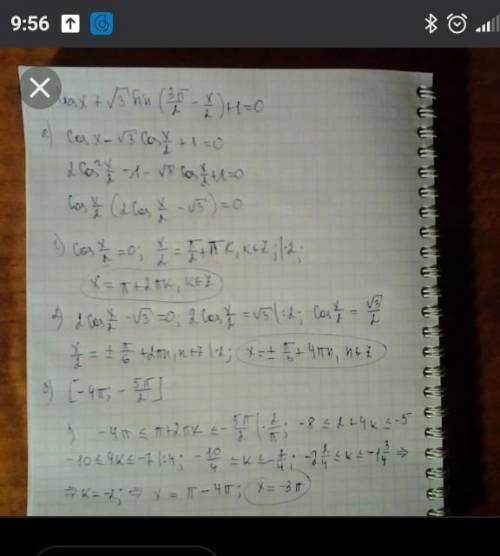 9:56
cos x + √3 sin (3π/2 - x/2) + 1 = 0
a) cos x - √3 cos x/2 + 1 = 0
2cos² x/2 - 1 - √3 cos x/2 + 1 = 0
cos x/2 (2cos x/2 - √3) = 0
1) cos x/2 = 0; x/2 = π/2 + πk, k∈Z; |·2;
x = π + 2πk, k∈Z
2) 2cos x/2 - √3 = 0; 2cos x/2 = √3 |:2; cos x/2 = √3/2
x/2 = ± π/6 + 2πn, n∈Z |·2; x = ± π/3 + 4πn, n∈Z
б) [-4π; -5π/2]
1) -4π ≤ π + 2πk ≤ -5π/2 |·2/π; -8 ≤ 2 + 4k ≤ -5
-10 ≤ 4k ≤ -7 |:4; -10/4 ≤ k ≤ -7/4; -2 2/4 ≤ k ≤ -1 3/4 ⇒
⇒ k = -2; ⇒ x = π - 4π; x = -3π